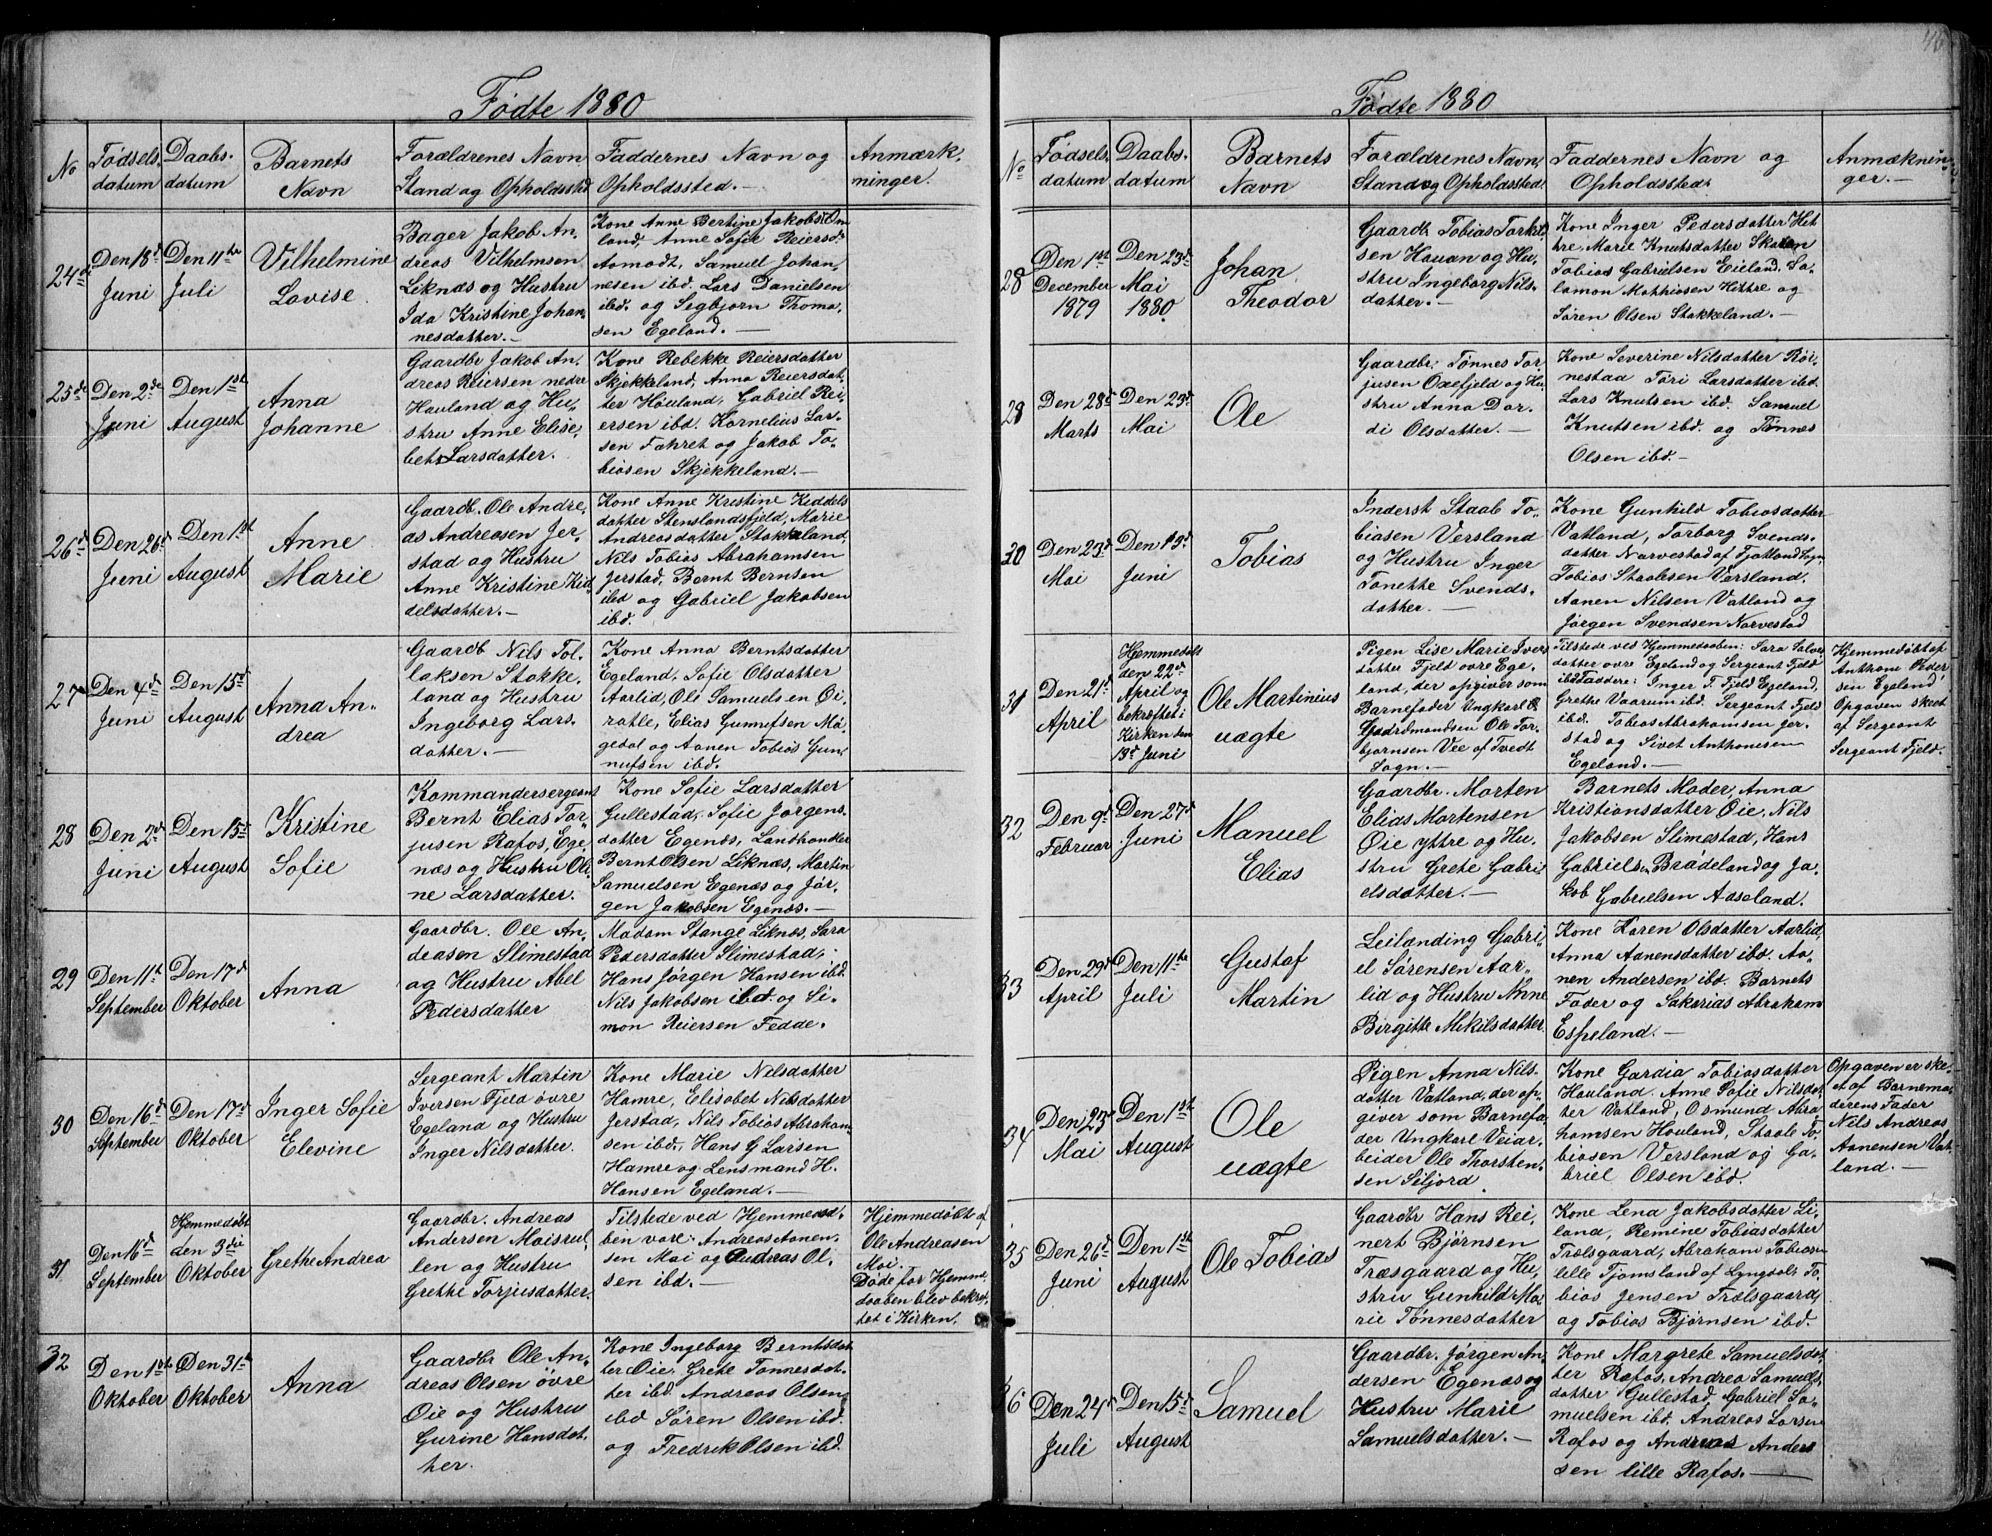 Fødte 1880
No
Fødsels-
datum
Daabs-
datum
Barnets
Navn
Forældrenes Navn
Stand og Opholdssted
Faddernes Navn og
Opholdssted.-
Anmærk-
ninger.
24de
Den 18d
Juni
Den 11te
Juli
Vilhelmine
Lovise.
Bager Jakob An-
dreas Vilhelmsen
Liknæs og Hustru
Ida Kristine Johan-
nesdatter.-
Kone Anne Bertine Jakobsd. Om-
land, Anne Sofie Reiersd.
Aamodt, Samuel Johan-
nesen ibd. Lars Danielsen
ibd. og Segbjørn Thoma-
sen Egeland.-
25de
Den 2de
Juni
Den 1ste
August
Anna
Johanne
Gaardbr Jakob An-
dreas Reiersen nedre
Houland og Hu-
stru Anne Elise-
bet Larsdatter.
Kone Rebekke Reiersdatter
Skjekkeland, Anna Reiersdat-
ter Houland, Gabriel Rei-
ersen ibd. Kornelius Lar-
sen Fahret og Jakob To-
biasen Skjekkeland.-
26d
Den 26d
Juni
Den 1st
August
Anne
Marie
Gaardb. Ole Andre-
as Andreasen Jer-
stad og Hustru
Anne Kristine Kid-
delsdatter.-
Kone Anne Kristine Kiddels
datter Stenslandsfjeld, Marie
Andreasdatter Stokkeland,
Nils Tobias Abrahamsen
Jerstad, Bernt Berntsen
ibd og Gabriel Jakobsen
ibd.
27
Den 4d
Juni
Den 15d
August
Anna An-
drea
Gaardb Nils Tol-
laksen Stokke-
land og Hustru
Ingeborg Lars-
datter.-
Kone Anna Berntsdatter
Egeland, Sofie Olsdatter
Aarlid, Ole Samuelsen Øi-
Elias Gunnufsen Mø-
gedal og Aanen Tobias Gun-
nufsen ibd.
28
Den 2d
Juni
Den 15d
August
Kristine
Sofie
Kommandersergeant
Bernt Elias Tor-
jusen Rafos, Ege-
næs og Hustru Oli-
ne Larsdatter.
Kone Sofie Larsdatter
Gullestad, Sofie Jørgens-
datter Egenæs, Landhandler
Bernt Olsen Liknæs, Martin
Samuelsen Egenæs og Jør-
gen Jakobsen Egenæs.-
29
Den 11t
September
Den 17d
Oktober
Anna
Gaardbr. Ole An-
deasen Slimestad
og Hustru Abel
Pedersdatter
Madam Stange Liknæs, Sara
Pedersdatter Slimestad,
Hans Jørgen Hansen ibd.
Nils Jakobsen ibd. og Si-
mon Reiersen Fedde.
30
Den 16d
September
Den 17d
Oktober
Inger Sofie
Elevine
Sergeant Martin
Iversen Fjeld øvre
Egeland og Hustru
Inger Nilsdatter.
Kone Marie Nilsdatter
Hamre, Elisabet Nilsdatter
Jerstad, Nils Tobias Abraham-
sen ibd., Hans G Larsen
Hamre og Lensmand H.
Hansen Egeland.-
31
Den 16d
September
Hjemmedøbt
den 3die
Oktober
Grethe Andrea
Gaardbr. Andreas
Andersen Moisrul-
len og Hustru
Grethe Torjusdatter.
Tilstede ved Hjemmedaa-
ben vare: Andreas Aanen-
sen Moi og Andreas Ol-
sen ibd.-
Hjemmedøbt af
Ole Andreasen
Moi.
Døde før Hjemme-
daaben blev bekræf-
tet i Kirken.
32
Den 1ste
Oktober
Den 31te
Oktober
Anna
Gaardbr Ole An-
dreas Olsen øvre
Øie og Hustru
Gurine Hansdat-
ter.
Kone Ingeborg Berntsdat-
ter Øie, Grete Tønnesdat-
ter ibd. Andreas Olsen
ibd Søren Olsen ibd.
og Fredrik Olsen ibd.
46
Fødte 1880
No
Fødsels-
datum
Daabs-
datum
Barnets
Navn
Forældrenes Navn,
Stand og Opholdssted
Faddernes Navn og
Opholdssted.
Anmæknin-
ger.-
28
Den 1ste
December
1879
Den 23d
Mai
1880
Johan
Theodor
Gaardb Tobias Torkel-
sen Houan og Hu-
stru Ingeborg Nils-
datter.-
Kone Inger Pedersdatter Hit-
tre, Marie Knutsdatter
Tobias Gabrielsen Eieland Sa-
lamon Mathiasen Hittre og
Søren Olsen Stakkeland.-
28
Den 28d
Marts
Den 23d
Mai
Ole
Gaardbr. Tønnes Tor-
jusen Oxefjeld og Hu-
stru Anna Dor-
di Olsdatter.-
Kone Severine Nilsdatter Røi-
nestad Tori Larsdatter ibd.
Lars Knutsen ibd. Samuel
Knutsen ibd. og Tønnes
Olsen ibd.-
30
Den 23d
Mai
Den 13d
Juni
Tobias
Inderst Staab To-
biasen Versland
og Hustru Inger
Tonette Svends-
datter.-
Kone Gunhild Tobiasdatter
Vatland, Torborg Svends-
datter Narvestad af Fjotland Sogn,
Tobias Staalesen Versland.
Aanen Nilsen Vatland og
Jørgen Svendsen Narvestad
31
Den 21d
April
Hjemmedøbt
den 22d
April og
bekræftet i
Kirken den
13d Juni
Ole Martinius
uægte
Pigen Lise Marie Ivers
datter Fjeld øvre Ege-
land, der opgiver som
Barnefader Ungkarl &
Gaardmandsøn Ole Tor-
bjørnsen Vee af Tvedt
Sogn.-
Tilstede ved Hjemmedaaben: Sara Salves-
datter øvre Egeland og Sergeant Fjeld
ibd Faddere: Inger T. Fjeld Egeland,
Grethe Vaarum ibd. Sergeant Fjeld
ibd. Tobias Abrahamsen Jer-
stad og Sivert Anthonisen
Egeland.-
Hjemmedøbt af
Anthoni Peder-
sen Egeland,
Opgaven skeet
af Sergeant
Sergeant Fjeld.
32
Den 9d
Februar
Den 27d
Juni
Manuel
Elias
Gaardbr. Morten
Elias Mortensen
Øie yttre og Hu-
stru Grete Gabri-
elsdatter.-
Barnets Moder, Anna
Kristiansdatter Øie, Nils
Jakobsen Slimestad, Hans
Gabrielsen Brådeland og Ja-
kob Gabrielsen Aaseland.
33
Den 29d
April
Den 11te
Juli
Gustaf
Martin
Leilænding Gabri-
el Sørensen Aar-
lid og Hustru Anne
Birgitte Mikilsdatter.
Kone Karen Olsdatter Aarlid,
Anna Aanensdatter ibd. Aa-
nen Andersen ibd. Barnets
Fader og Sakarias Abraham
Espeland.-
34
Den 23d
Mai
Den 1st
August
Ole
uægte
Pigen Anna Nils-
datter Vatland, der op-
giver som Barnefa-
der Ungkarl Veiar-
beider Ole Thorsten-
sen Siljord
Kone Gardia Tobiasdatter
Houland. Anne Sofie Nilsdat-
ter Vatland, Osmund Abra-
hamsen Houland, Staale To-
biasen Versland og Ga-
briel Olsen ibd.
Opgaven er ske-
et af Barnemo-
derens Fader
Nils Andreas
Aanensen Vat-
land.-
35
Den 26d
Juni
Den 1st
August
Ole Tobias
Gaardbr Hans Rei-
nert Bjørnsen
Træsgaard og Hu-
stru Gunhild Ma-
rie Tønnesdatter
Kone Lena Jakobsdatter Li-
land, Remine Tobiasdatter
Trælsgaard, Abraham Tobiasen
lille Tjomsland af Lyngdal, To-
bias Jensen Trælsgaard,
og Tobias Bjørnsen ibd.
36
Den 24d
Juli
Den 15d
August
Samuel
Gaardbr. Jørgen An-
dersen Egenæs og
Hustru Marie
Samuelsdatter.-
Kone Margrete Samuelsdat-
ter Rafos, Andrea Samuels-
datter Gullestad, Gabriel Sa-
muelsen ibd. Andreas Larsen
Rafos og Andreas Ander-
sen lille Rafos.-